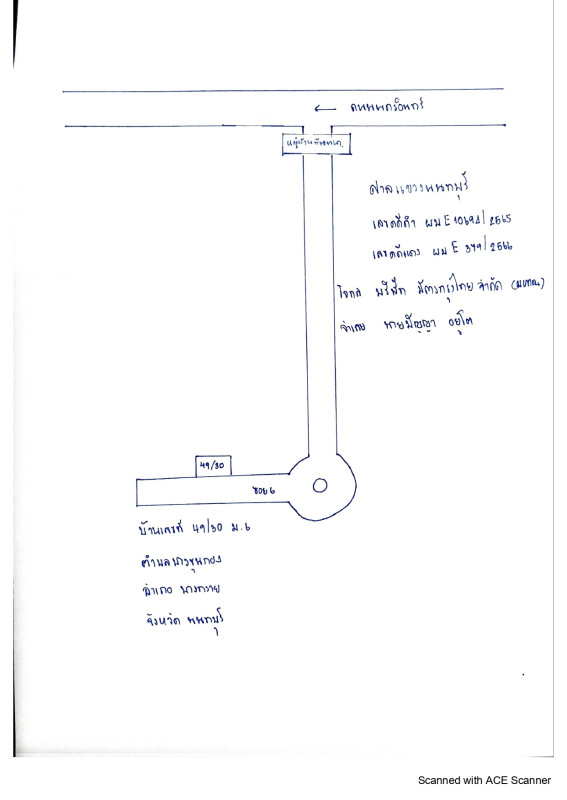 ← ถนนนครอินทร์
หมู่บ้าน
ศาลแขวงนนทบุรี
เลขคดีดำ ผบ E 10692/2565
เลขคดีแดง ผบ E 379/2566
โจทก์ บริษัท บัตรกรุงไทย จำกัด (มหาชน)
จำเลย นายปัญญา อยู่โต
49/30
ซอย 6
บ้านเลขที่ 49/30 ม.6
ตำบลบางขุนกอง
อำเภอ บางกรวย
จังหวัด นนทบุรี
Scanned with ACE Scanner